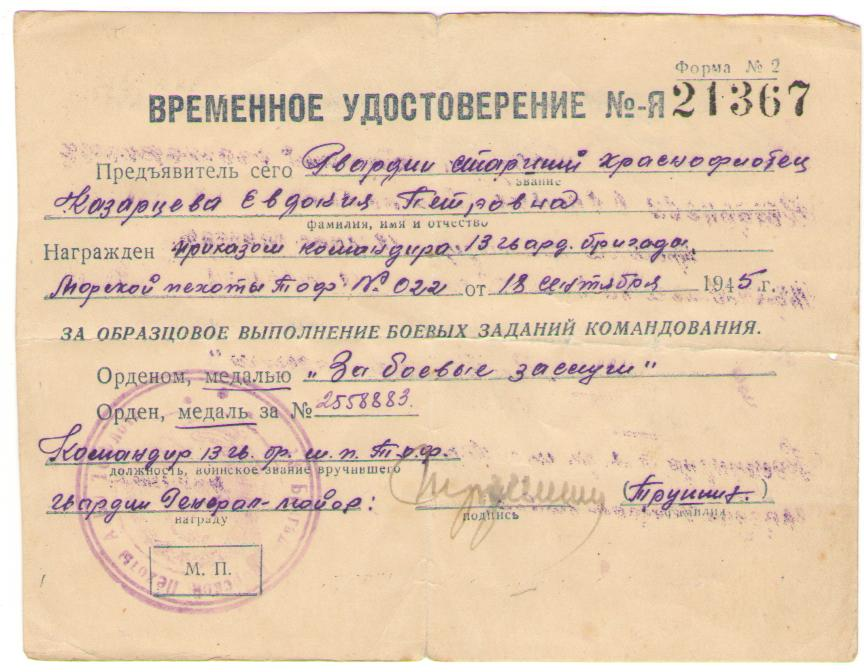 Форма № 2
ВРЕМЕННОЕ УДОСТОВЕРЕНИЕ №-Я 21367
Предъявитель сего Гвардии старший краснофлотец
звание
Казарцева Евдокия Петровна
фамилия, имя и отчество
Награжден приказом командира 13 гвард. бригады
Морской пехоты Тоф № 022 от 18 сентября 1945 г.
ЗА ОБРАЗЦОВОЕ ВЫПОЛНЕНИЕ БОЕВЫХ ЗАДАНИЙ КОМАНДОВАНИЯ.
Орденом, медалью „За боевые заслуги"
Орден, медаль за № 2558883.
Командир 13 гв. бр. м. п. Т.о.ф.
должность, воинское звание вручившего
гвардии Генерал-майор: (Трушин.)
награду подпись фамилия
М. П.